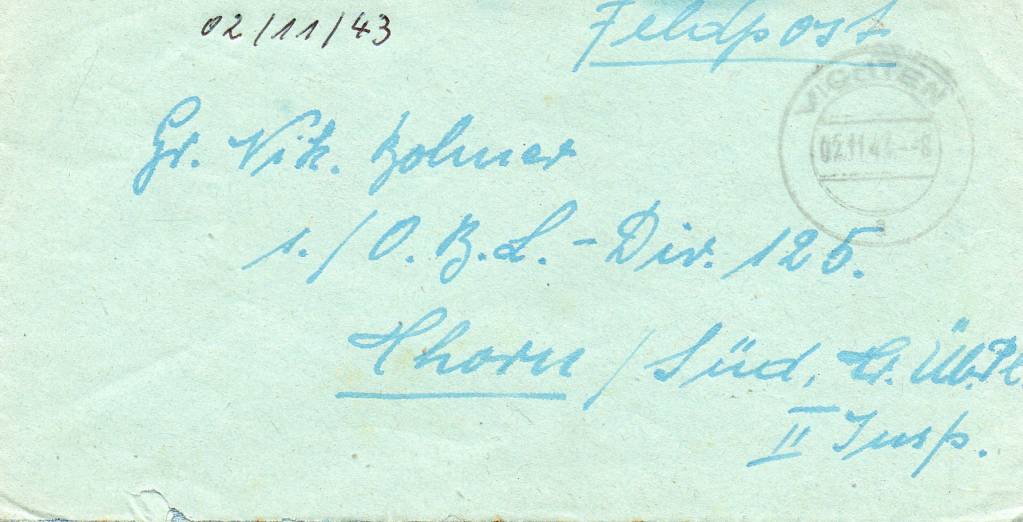 02/11/43
Feldpost
VICHTEN
02.11.43.--8
a
Gr. Nik. Bolmer
1./O.B.L.-Div. 125.
Thorn / Süd, Tr. Üb. Pl
II Insp.